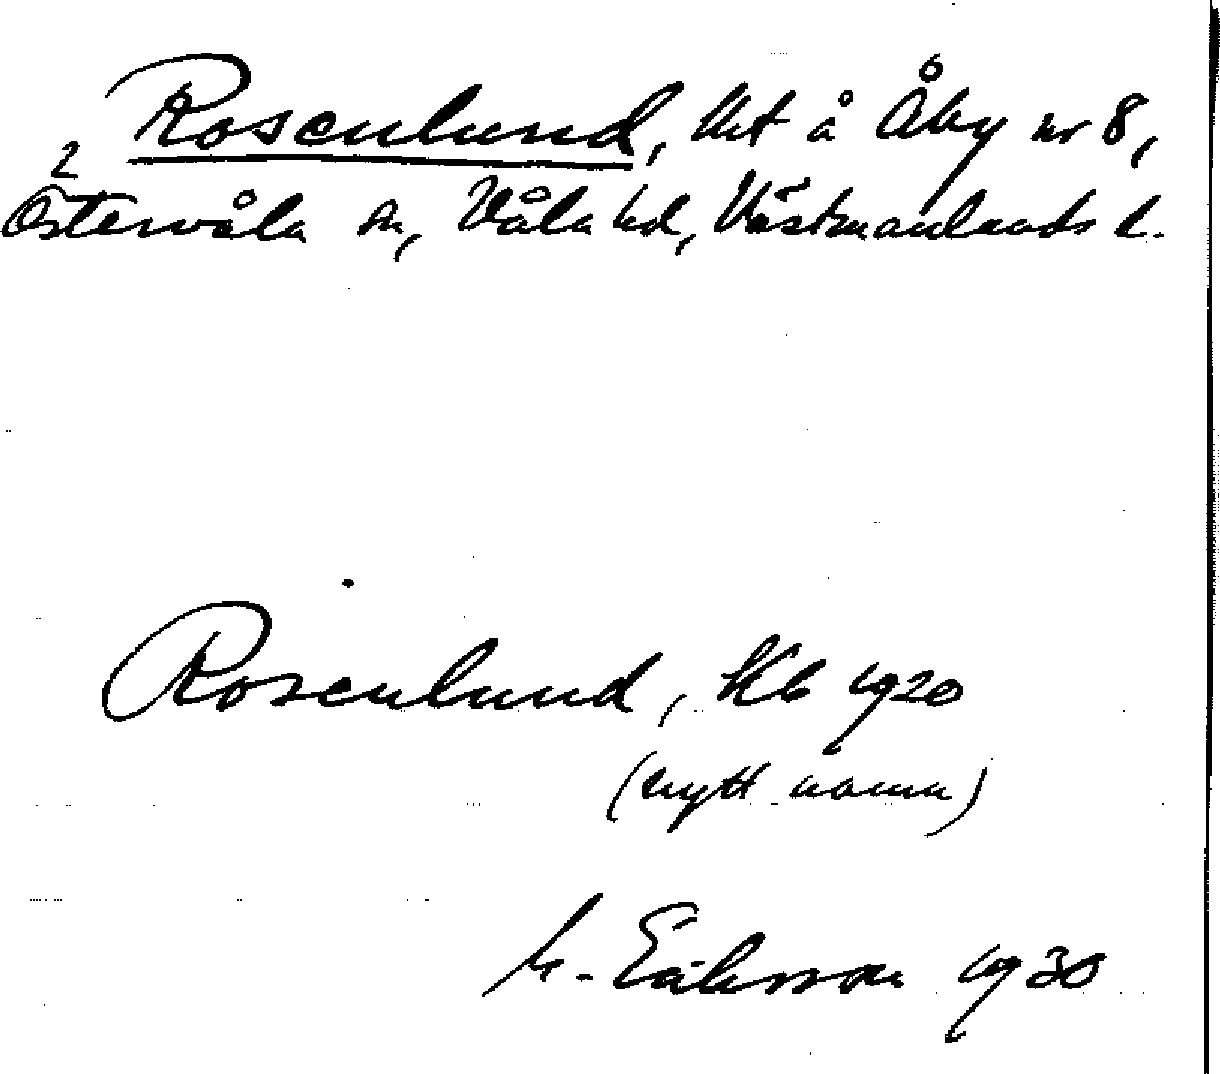 Rosenlund, lht å Åby nr 8,
Östervåla sn, Våla hd, Västmanlands l.
Rosenlund, Kb 1920
(nytt namn)
M. Eriksson 1930